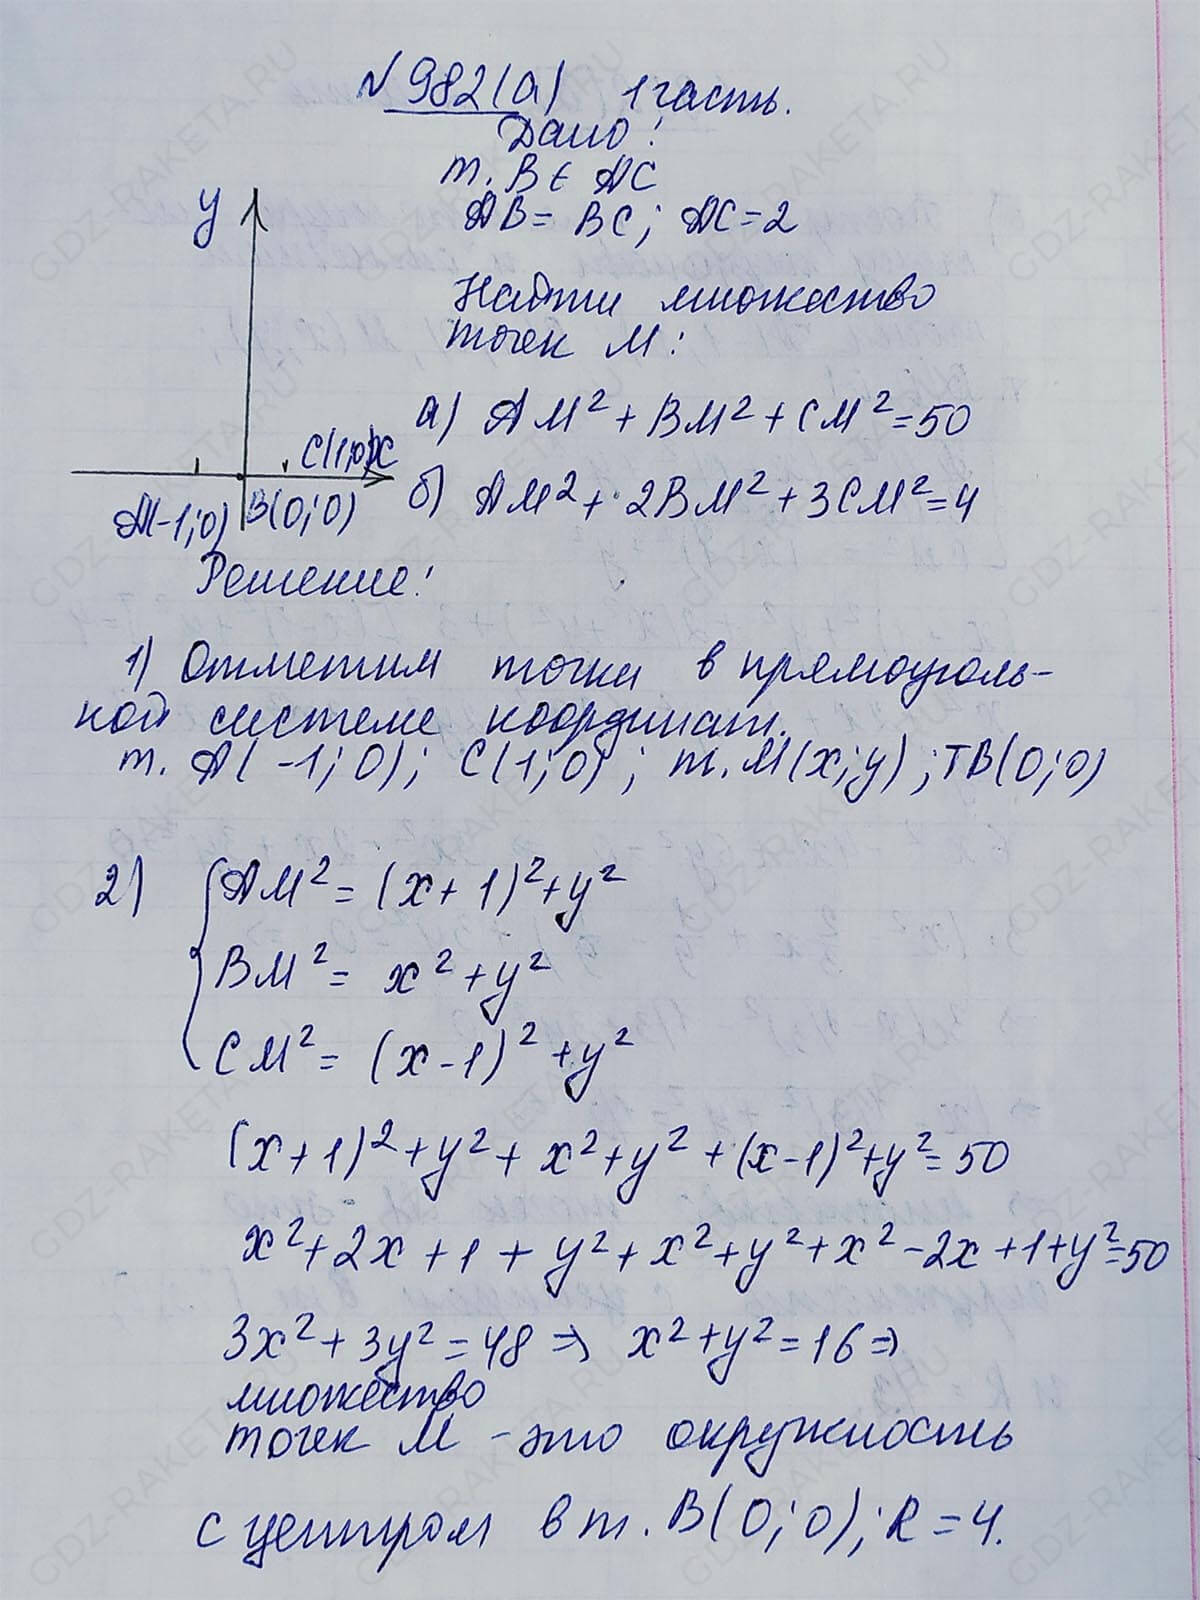 N 982(а) 1 часть.
Дано:
т. B ∈ AC
AB = BC; AC = 2
Найти множество
точек M:
а) AM² + BM² + CM² = 50
б) AM² + 2BM² + 3CM² = 4
y
C(1;0) x
A(-1;0) B(0;0)
Решение:
1) Отметим точки в прямоуголь-
ной системе координат.
т. A(-1;0); C(1;0); т. M(x;y); т B(0;0)
2) { AM² = (x+1)² + y²
BM² = x² + y²
CM² = (x-1)² + y²
(x+1)² + y² + x² + y² + (x-1)² + y² = 50
x² + 2x + 1 + y² + x² + y² + x² - 2x + 1 + y² = 50
3x² + 3y² = 48 ⇒ x² + y² = 16 ⇒
множество
точек M - это окружность
с центром в т. B(0;0); R = 4.
GDZ-RAKETA.RU